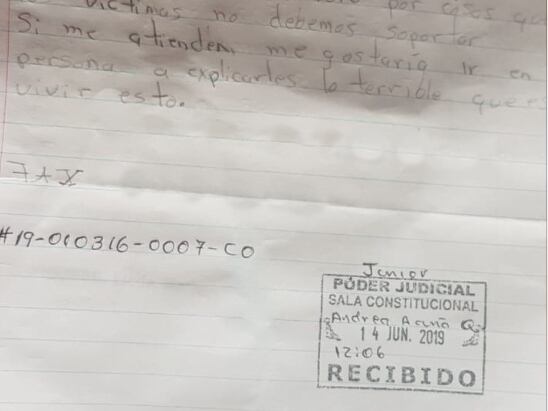 víctimas no debemos soportar
Si me atienden, me gostaría ir en
persona a explicarles lo terrible que es
vivir esto.
#19-010316-0007-CO
Junior
PODER JUDICIAL
SALA CONSTITUCIONAL
Andrea Acuña Q.
14 JUN. 2019
12:06
RECIBIDO